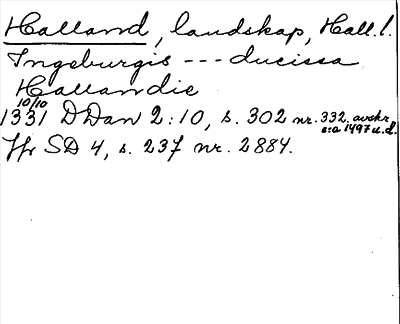 Halland, landskap, Hall. l.
Ingeburgis --- ducissa
Hallandie
10/10
1331 DDan 2:10, s. 302 nr. 332. avskr.
s:a 1497 u.d.
Jfr SD 4, s. 237 nr. 2884.